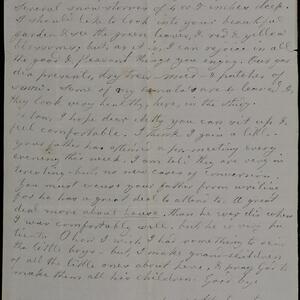 Several snow storms of 4 or 5 inches deep.
I should like to look into your beautiful
garden & see the green leaves, & red & yellow
blossoms, but, as it is, I can rejoice in all
the good & pleasant things you enjoy. Our
presents, dry trees - mud - & patches of
snow. Some of my are
they look very healthy here, in the
Now, I hope dear you can sit up &
feel comfortable. I think I gain a little.
Your father has attended a meeting every
evening this week. I am told they are very in
teresting - but no new cases of conversion.
You must excuse your father from writing
for he has a great deal to attend to. A great
deal more about house, than he was did when
I was comfortably well, but he is very pa
tient. O how I wish I had something to send
the little boys - but I make grand-children
of all the little ones about here, & pray God to
make them all his children. Good bye